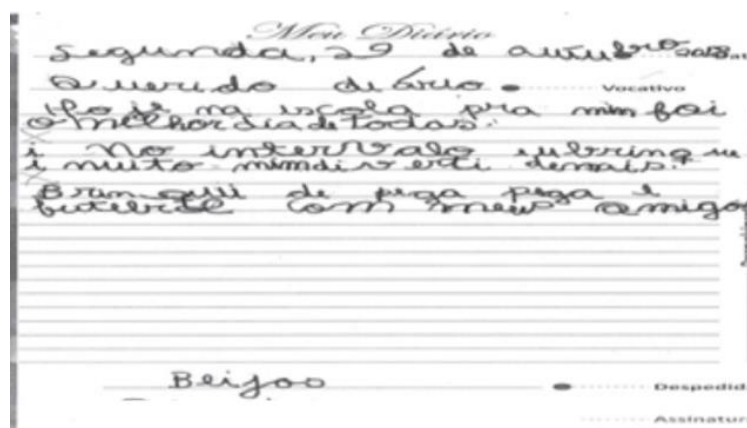 Meu Diário
Segunda, 29 de outubro 2018
Querido diário Vocativo
Hoje na iscola pra mim foi
o melhor dia de Todas.
i No intervalo eu bringuei
i muito mim diverti demais.
Brinquei de pega pega e
com meus amigos
Beijos Despedid
Assinatur